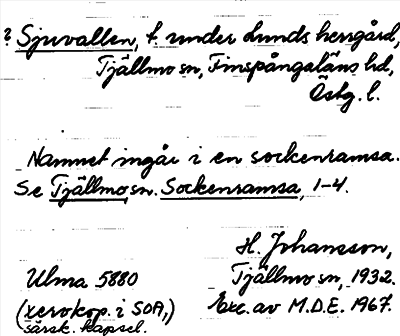 ? Sjuvallen, t. under Lunds herrgård,
Tjällmo sn, Finspångaläns hd,
Östg. l.
Namnet ingår i en sockenramsa.
Se Tjällmo sn. Sockenramsa, 1-4.
H. Johansson,
Ulma 5880
Tjällmo sn, 1932.
(xerokop. i SOA,)
Exc. av M.D.E. 1967.
särsk. kapsel.